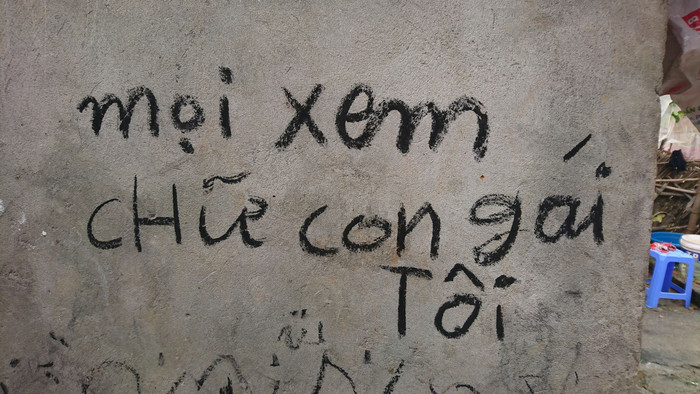 mọi xem
cHữ con gái
Tôi